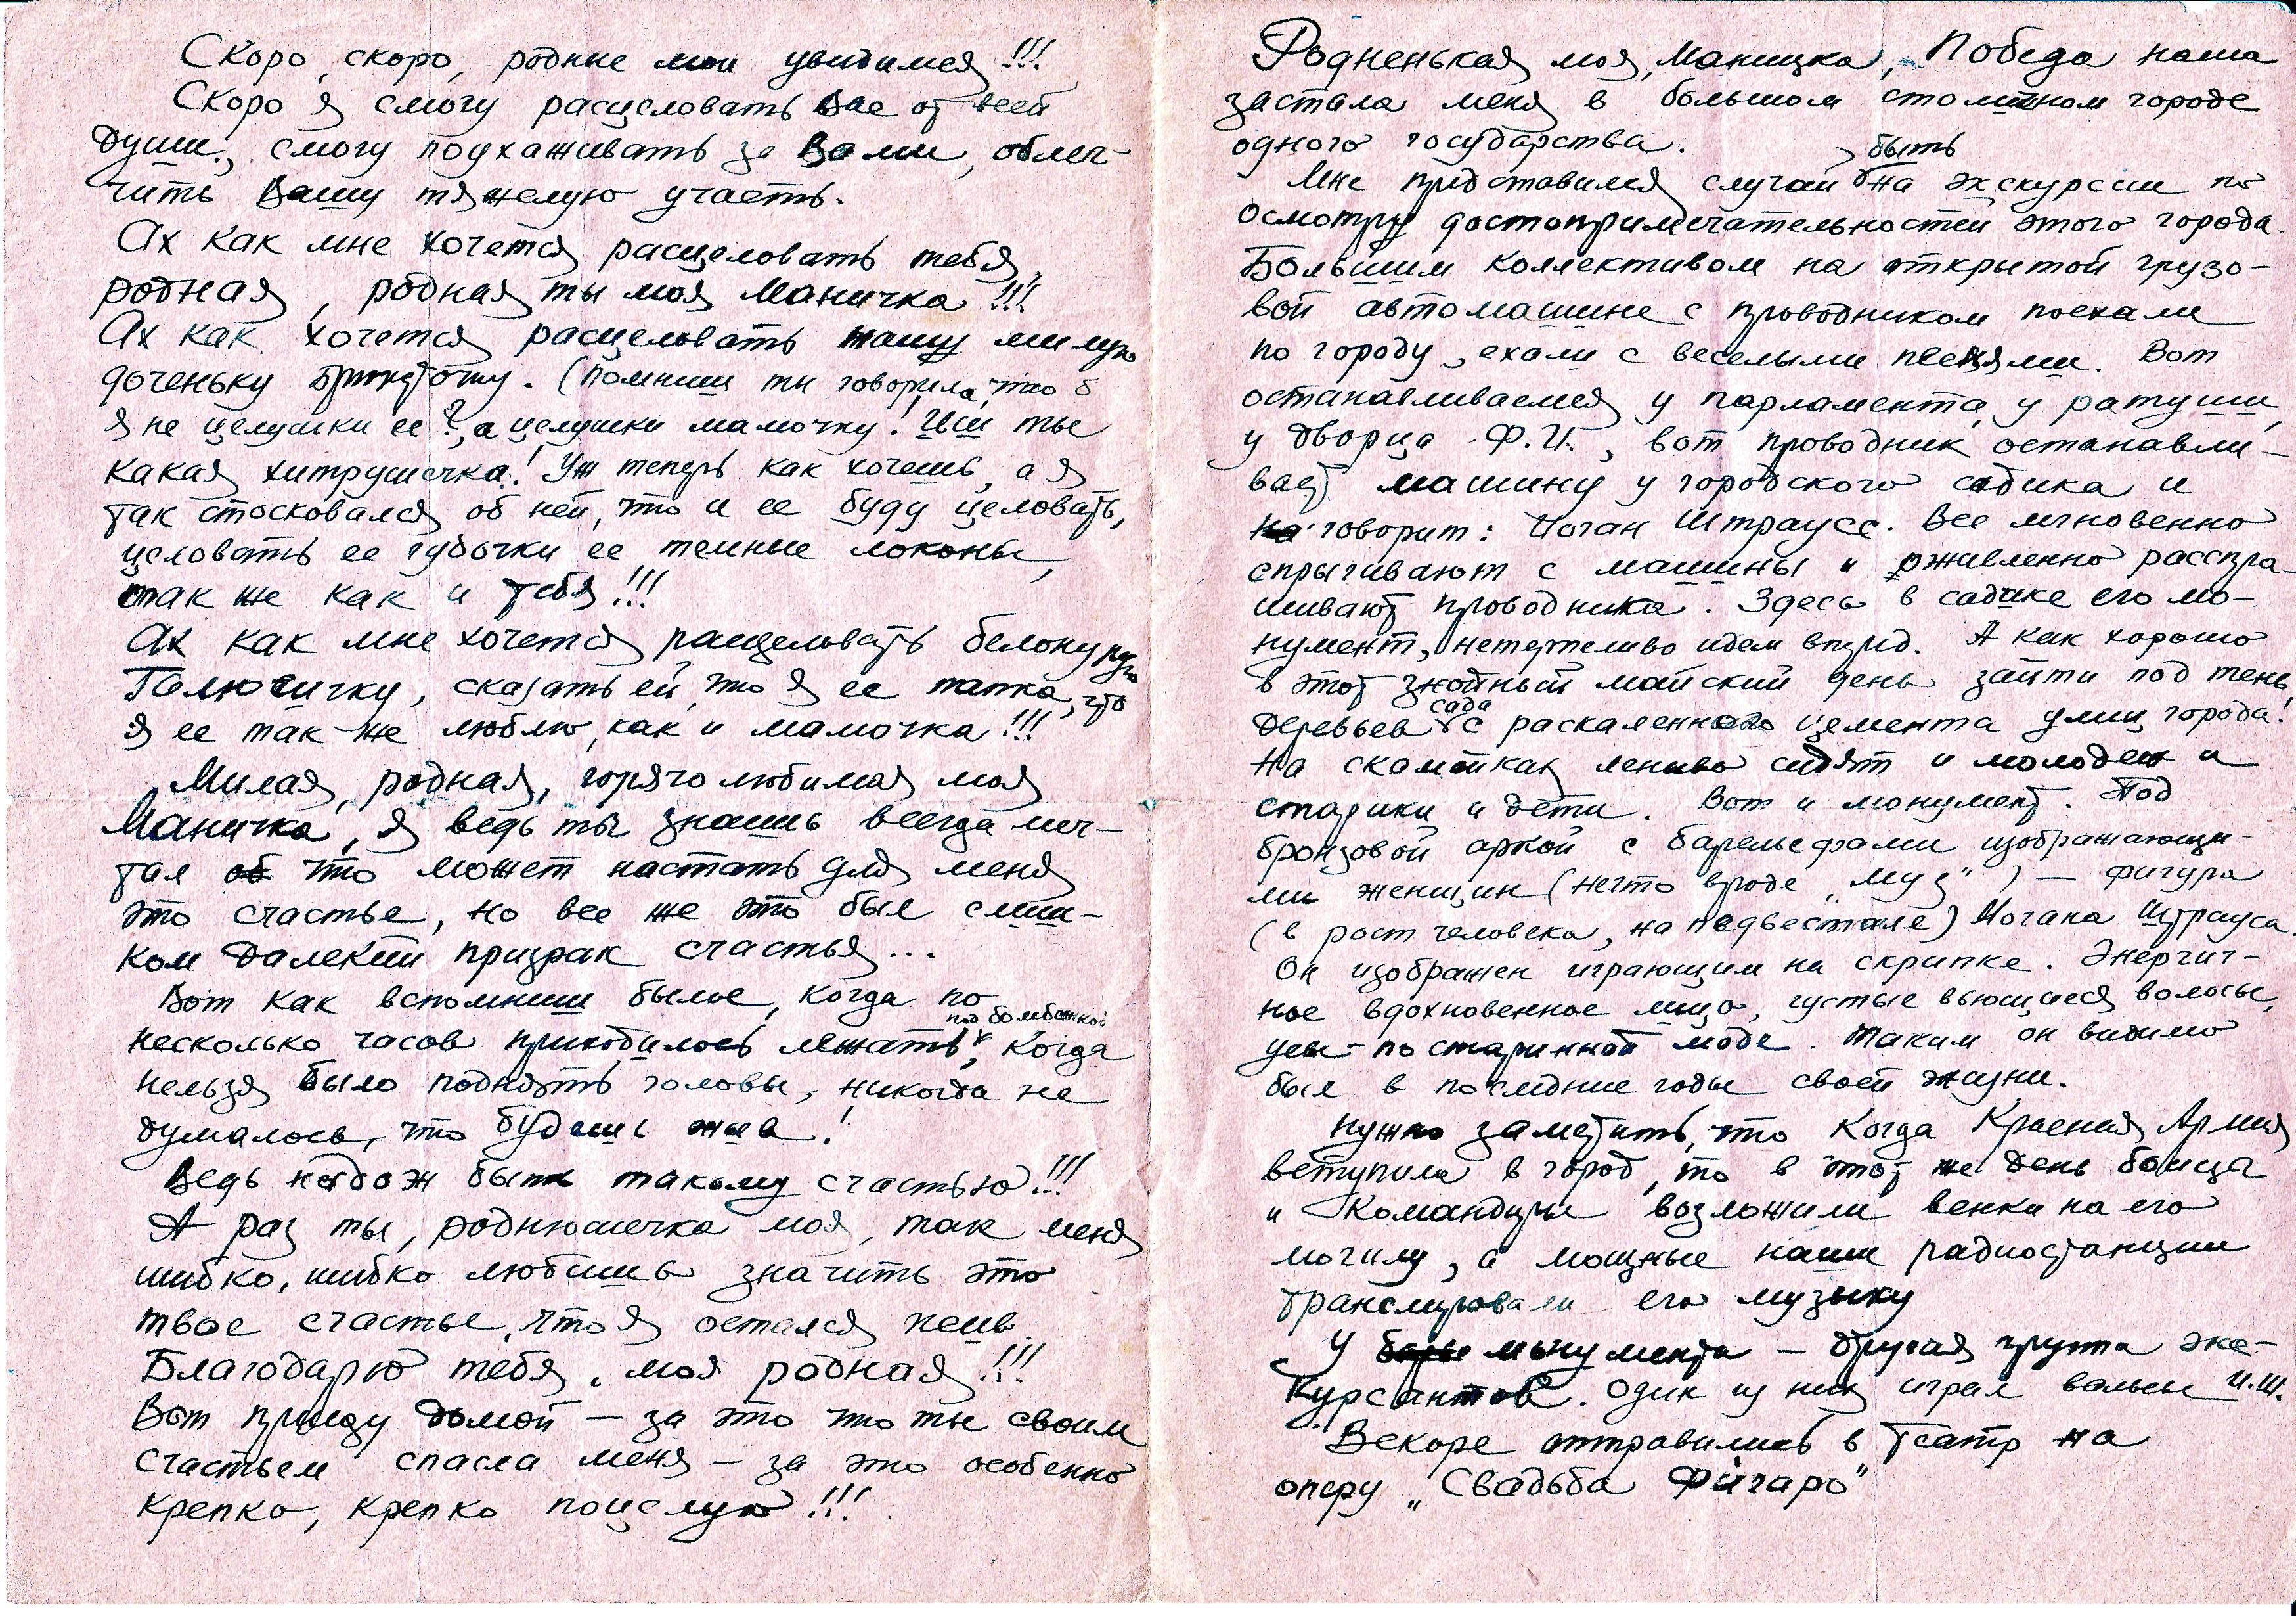 Скоро, скоро, родные мои увидимся!!!
Скоро я смогу расцеловать Вас от всей
души, смогу поухаживать за Вами, облег-
чить Вашу тяжелую участь.
Ах как мне хочется расцеловать тебя,
родная, родная ты моя Маничка!!!
Ах как хочется расцеловать нашу милую
доченьку. (Помниш ты говорила, что б
я не целушки ее?, а целушки мамочку! Иш ты
какая хитрушечка! Уж теперь как хочешь, а я
так стосковался об ней, что и ее буду целовать,
целовать ее губочки ее темные локоны,
так же как и тебя!!!
Ах как мне хочется расцеловать белокурую
Галюсичку, сказать ей, что я ее папка, что
я ее так-же люблю, как и мамочка!!!
Милая, родная, горячо любимая моя
Маничка, я ведь ты знаешь всегда меч-
тал об что может настать для меня
это счастье, но все же это был слиш-
ком далекий призрак счастья...
Вот как вспомниш былое, когда по
несколько часов приходилось лежать под бомбежкой, когда
нельзя было поднять головы, никогда не
думалось, что будешь жив!
Ведь надож быть такому счастью!!!
А раз ты, роднюшечка моя, так меня
шибко, шибко любишь значить это
твое счастье, что я остался жив.
Благодарю тебя, моя родная!!!
Вот приеду домой – за это что ты своим
счастьем спасла меня – за это особенно
крепко, крепко поцелую!!!
Родненькая моя, Маничка, Победа наша
застала меня в большом столичном городе
одного государства.
Мне представился случай быть на экскурсии по
осмотру достопримечательностей этого города.
Большим коллективом на открытой грузо-
вой автомашине с проводником поехали
по городу, ехали с веселыми песнями. Вот
останавливаемся у парламента, у ратуши,
у дворца Ф.И., вот проводник останавли-
вает машину у городского садика и
на говорит: Иоган Штраусс. Все мгновенно
спрыгивают с машины и оживленно расспра-
шивают проводника. Здесь в садике его мо-
нумент, нетерпеливо идем вперед. А как хорошо
в этот знойный майский день зайти под тень
деревьев сада с раскаленного цемента улиц города!
На скамейках лениво сидят и молодеж и
старики и дети. Вот и монумент. Под
бронзовой аркой с барельефами изображающи-
ми женщин (нечто вроде „муз“) – фигура
(в рост человека, на педвестале) Иогана Штрауса.
Он изображен играющим на скрипке. Энергич-
ное вдохновенное лицо, густые вьющиеся волосы,
усы – по старинной моде. Таким он видимо
был в последние годы своей жизни.
Нужно заметить, что когда Красная Армия
вступила в город, то в этот же день бойцы
и командиры возложили венки на его
могилу, а мощные наши радиостанции
транслировали его музыку
У монумента – другая группа экс-
курсантов. Один из них играл вальсы И.Ш.
Вскоре отправились в театр на
оперу „Свадьба Фигаро“